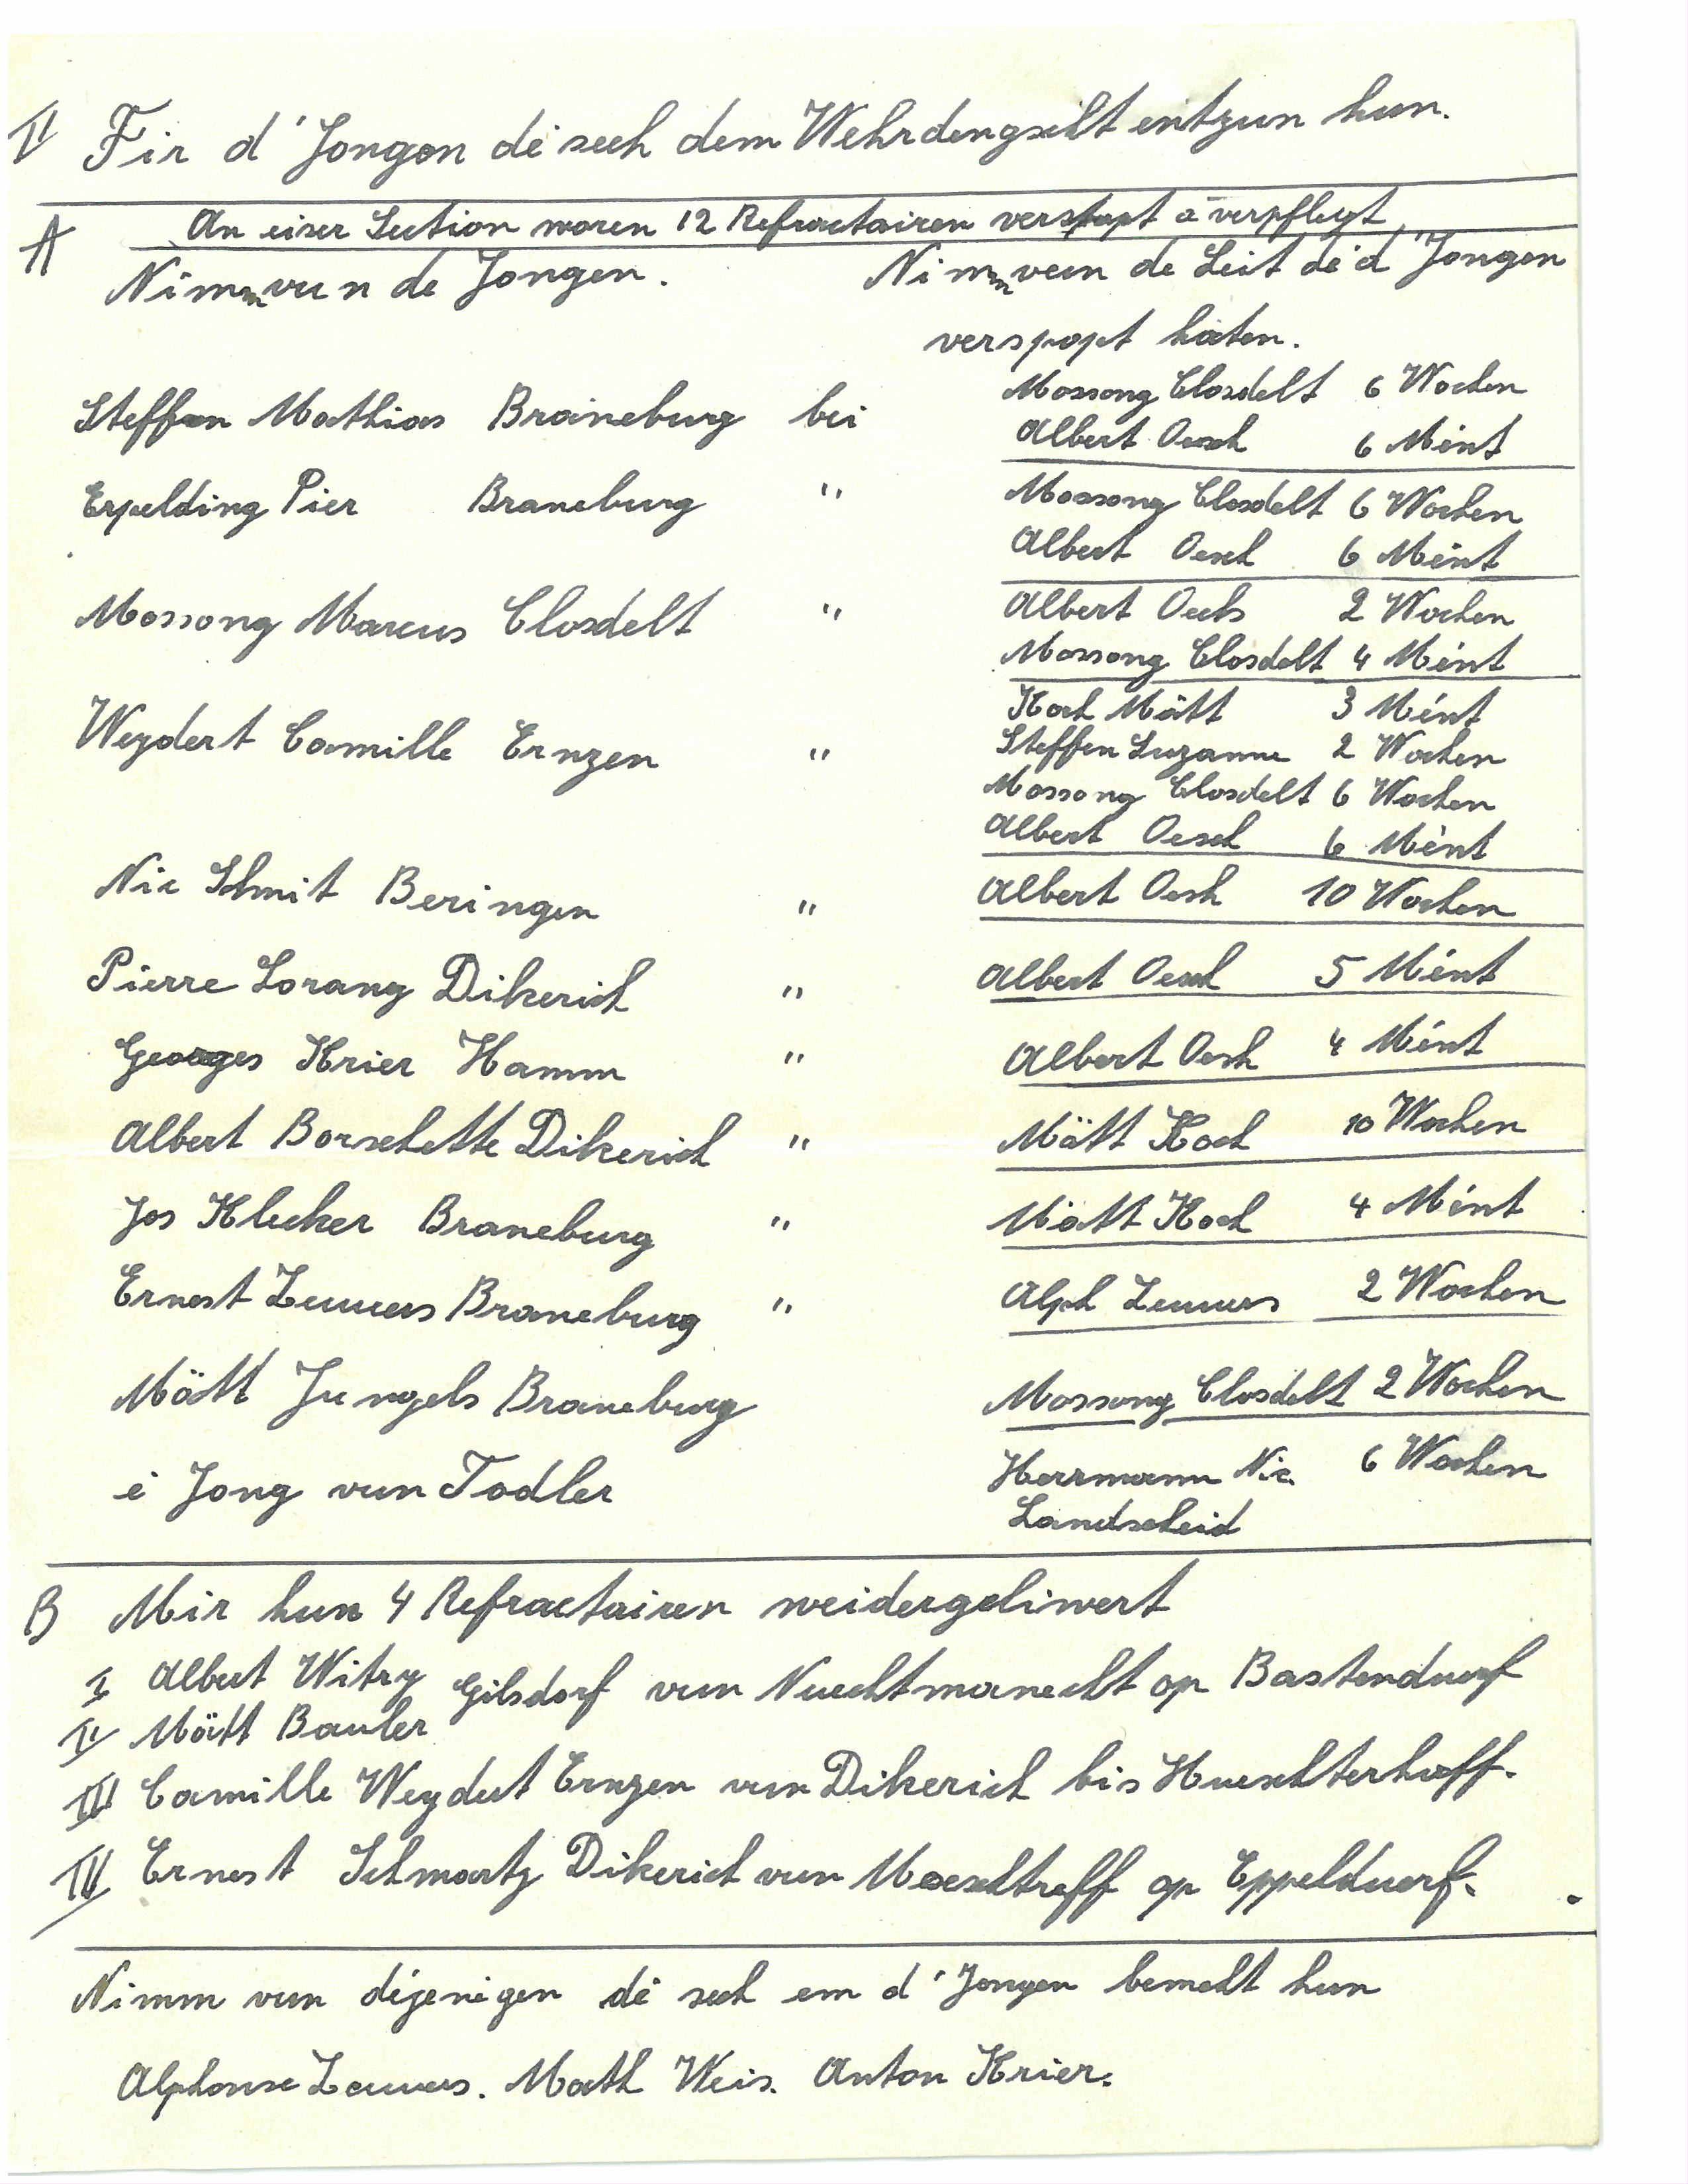 II Fir d'Jongen dé sech dem Wehrdengscht entzun hun.
A An eiser Section woren 12 Refractairen verstopt a verpflegt
Nimm vun de Jongen. Nimm vun de Leit dé d'Jongen
verspopt haten.
Steffen Mathias Braneburg bei Mossong Closdelt 6 Wochen
Albert Oesch 6 Mént
Erpelding Pier Braneburg " Mossong Closdelt 6 Wochen
Albert Oesch 6 Mént
Mossong Marcus Closdelt " Albert Oechs 2 Wochen
Mossong Closdelt 4 Mént
Weydert Camille Ernzen " Koch Mätt 3 Mént
Steffen Suzanne 2 Wochen
Mossong Closdelt 6 Wochen
Albert Oesch 6 Mént
Nic Schmit Beringen " Albert Oesch 10 Wochen
Pierre Lorang Dikerich " Albert Oesch 5 Mént
Georges Krier Hamm " Albert Oesch 4 Mént
Albert Borschette Dikerich " Mätt Koch 10 Wochen
Jos Klecker Braneburg " Mätt Koch 4 Mént
Ernest Leuwers Braneburg " Alph Leuwers 2 Wochen
Mätt Jungels Braneburg Mossong Closdelt 2 Wochen
é Jong vun Todler Herrmann Nic. 6 Wochen
Landscheid
B Mir hun 4 Refractairen weidergeliwert
I Albert Witry Gilsdorf vun Nuechtmanecht op Bastenduerf
II Mätt Bauler
III Camille Weydert Ernzen vun Dikerich bis Hueschterhaff.
IV Ernest Schmartz Dikerich vun Moeschtreff op Eppelduerf.
Nimm vun déjenigen dé sech em d'Jongen beméht hun
Alphonse Leuwers. Math Weis. Anton Krier.